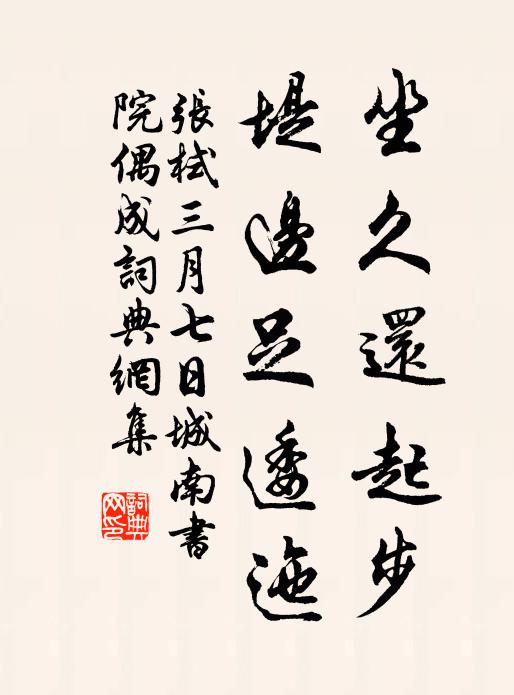 坐久還起步
堤邊足逶迤
張栻三月七日城南書
院偶成詞典網集
詞典
网印